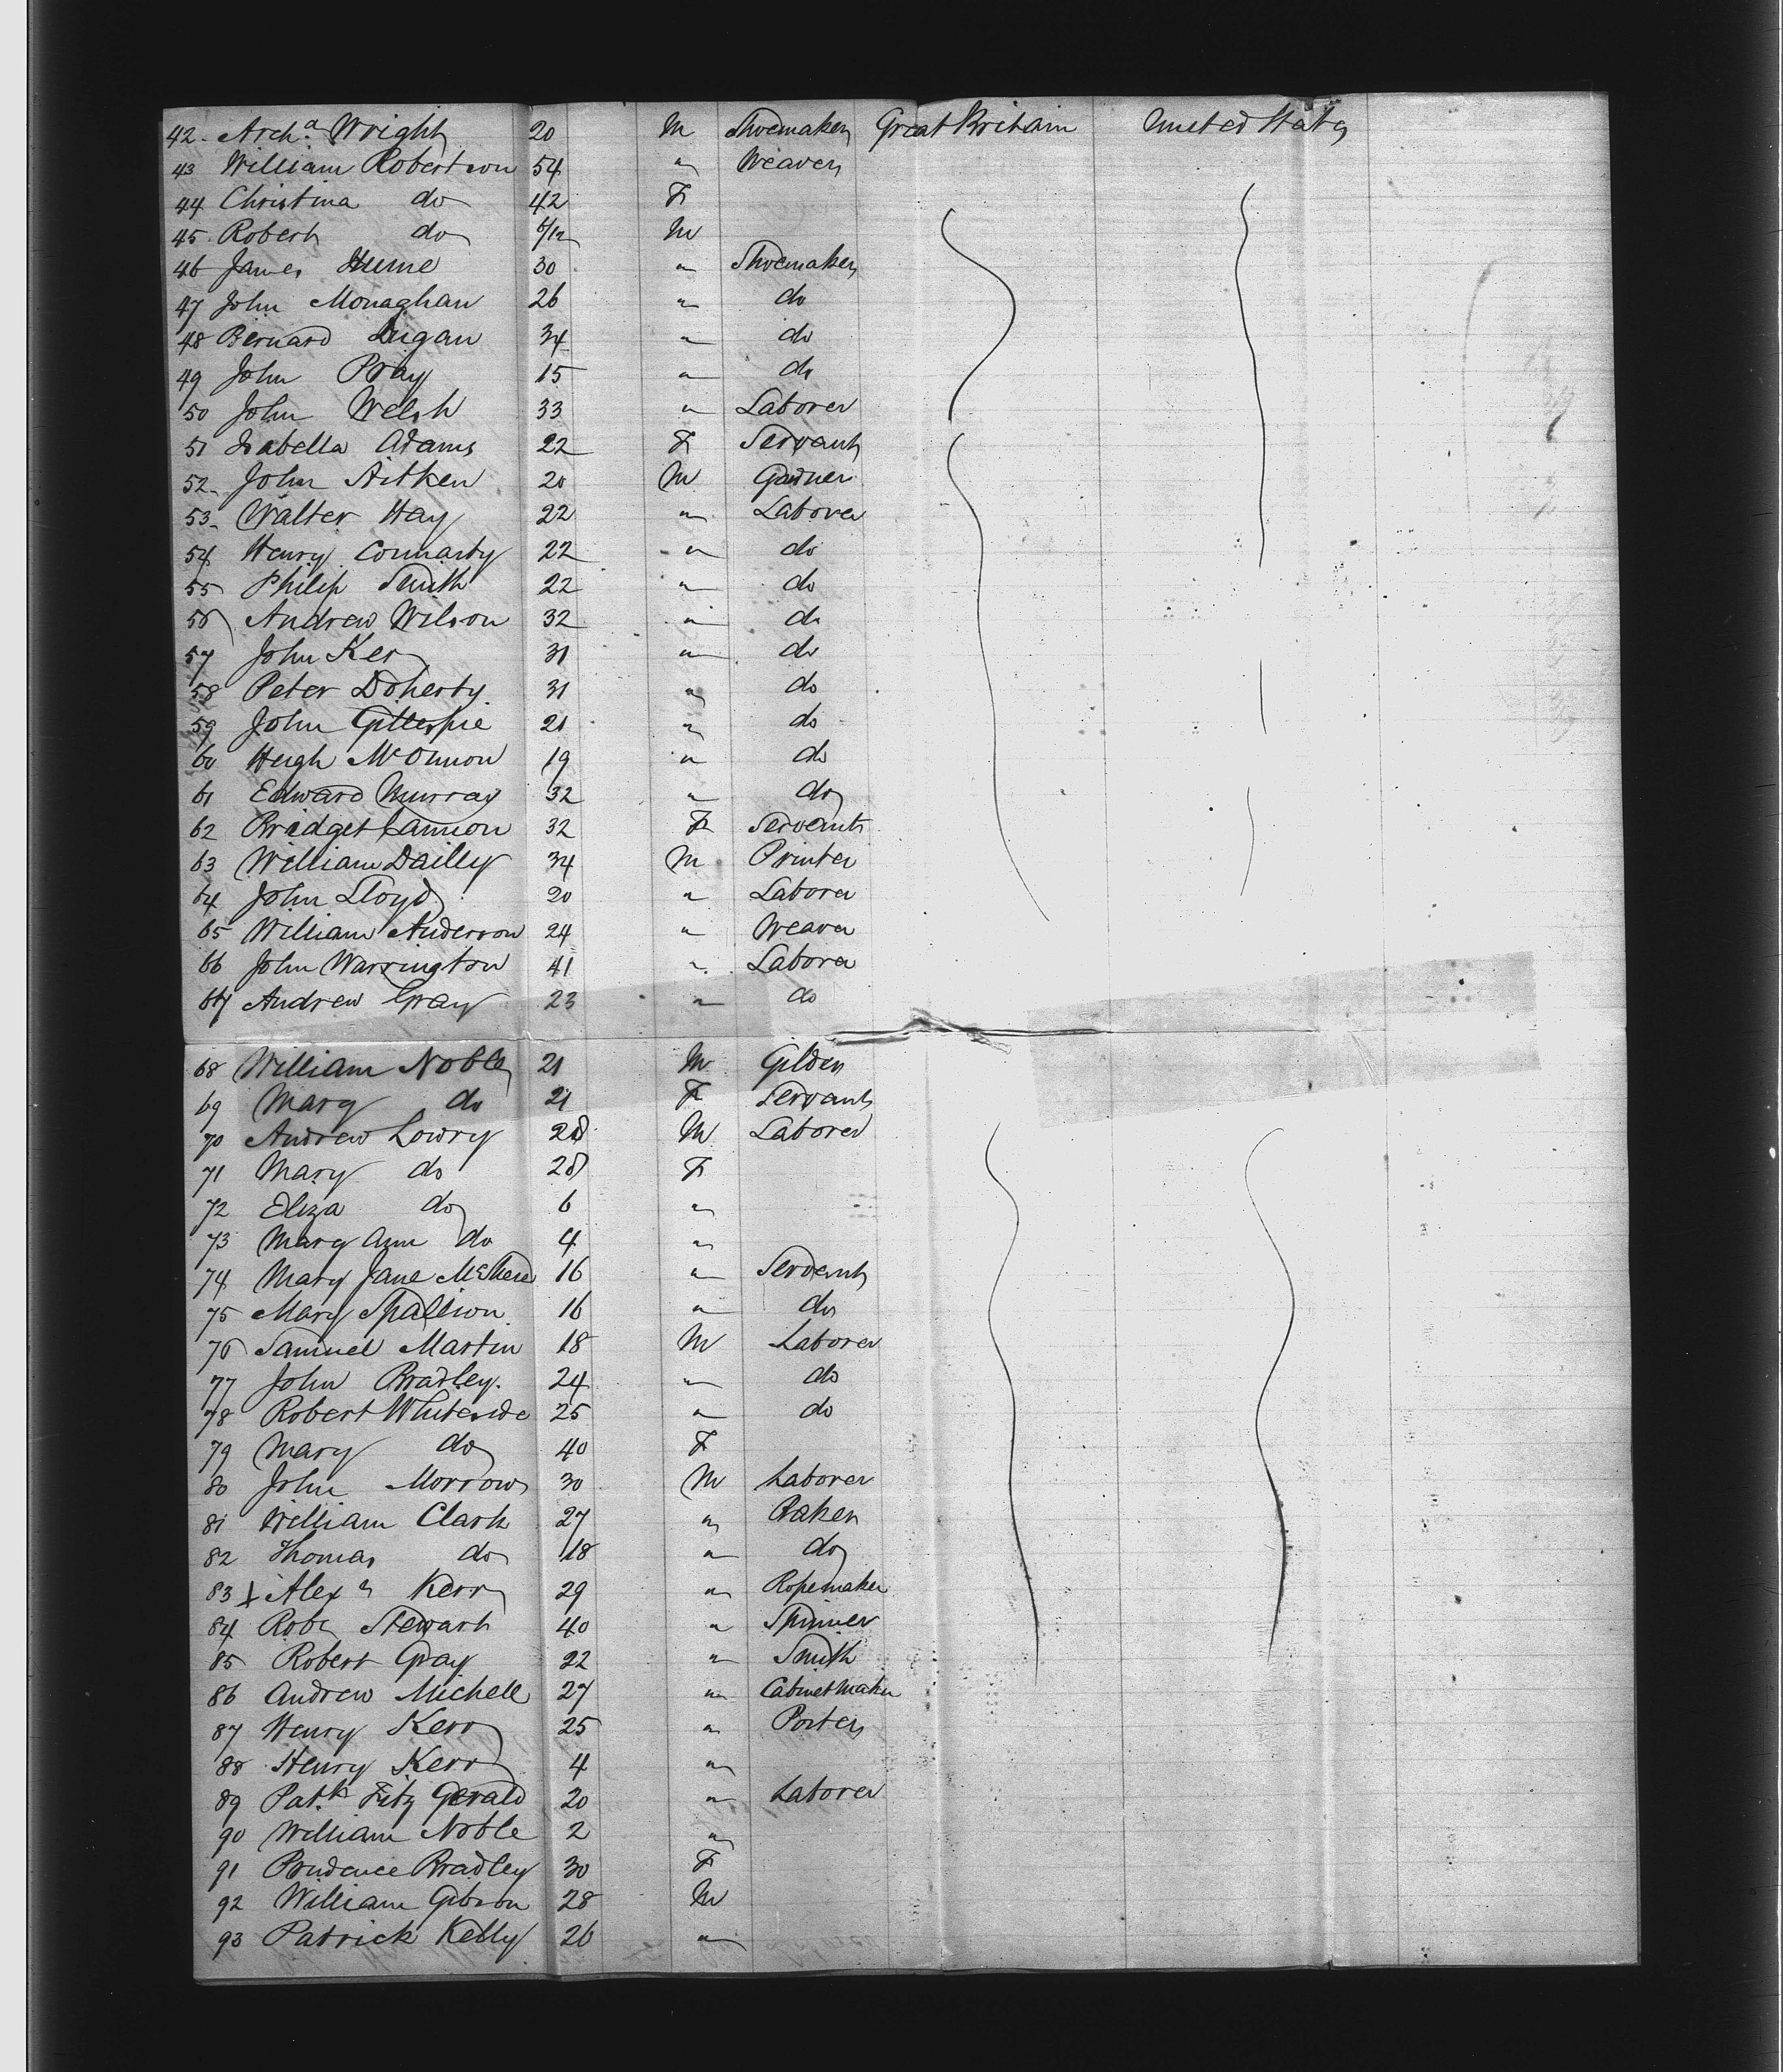 42. Archd Wright 20 M Shoemaker Great Britain United States
43 William Robertson 54 " Weaver
44 Christina do 42 F
45 Robert do 6/12 M
46 James Hume 30 " Shoemaker
47 John Monaghan 26 " do
48 Bernard Dugan 34 " do
49 John Pray 15 " do
50 John Welsh 33 " Laborer
51 Isabella Adams 22 F Servant
52 John Aitken 20 M Gardner
53 Walter Hay 22 " Laborer
54 Henry Connarty 22 " do
55 Philip Smith 22 " do
56 Andrew Wilson 32 " do
57 John Ker 31 " do
58 Peter Doherty 31 " do
59 John Gillespie 21 " do
60 Hugh 19 " do
61 Edward Murray 32 " do
62 Bridget Cannon 32 F Servant
63 William Dailly 34 M Printer
64 John Lloyd 20 " Laborer
65 William Anderson 24 " Weaver
66 John Warrington 41 " Laborer
67 Andrew Gray 23 " do
68 William Noble 21 M Gilder
69 Mary do 21 F Servant
70 Andrew Lowry 28 M Laborer
71 Mary do 28 F
72 Eliza do 6 "
73 Mary Ann do 4 "
74 Mary Jane 16 " Servant
75 Mary 16 " do
76 Samuel Martin 18 M Laborer
77 John Bradley. 24 " do
78 Robert Whiteside 25 " do
79 Mary do 40 F
80 John Morrow 30 M Laborer
81 William Clark 27 " Baker
82 Thomas do 18 " do
83 + Alexr Kerr 29 " Ropemaker
84 Robt Stewart 40 " Spinner
85 Robert Gray 22 " Smith
86 Andrew Michell 27 " Cabinetmaker
87 Henry Kerr 25 " Porter
88 Henry Kerr 4 "
89 Patk Fitz Gerald 20 " Laborer
90 William Noble 2 "
91 Prudence Bradley 30 F
92 William Gibson 28 M
93 Patrick Kelly 26 "